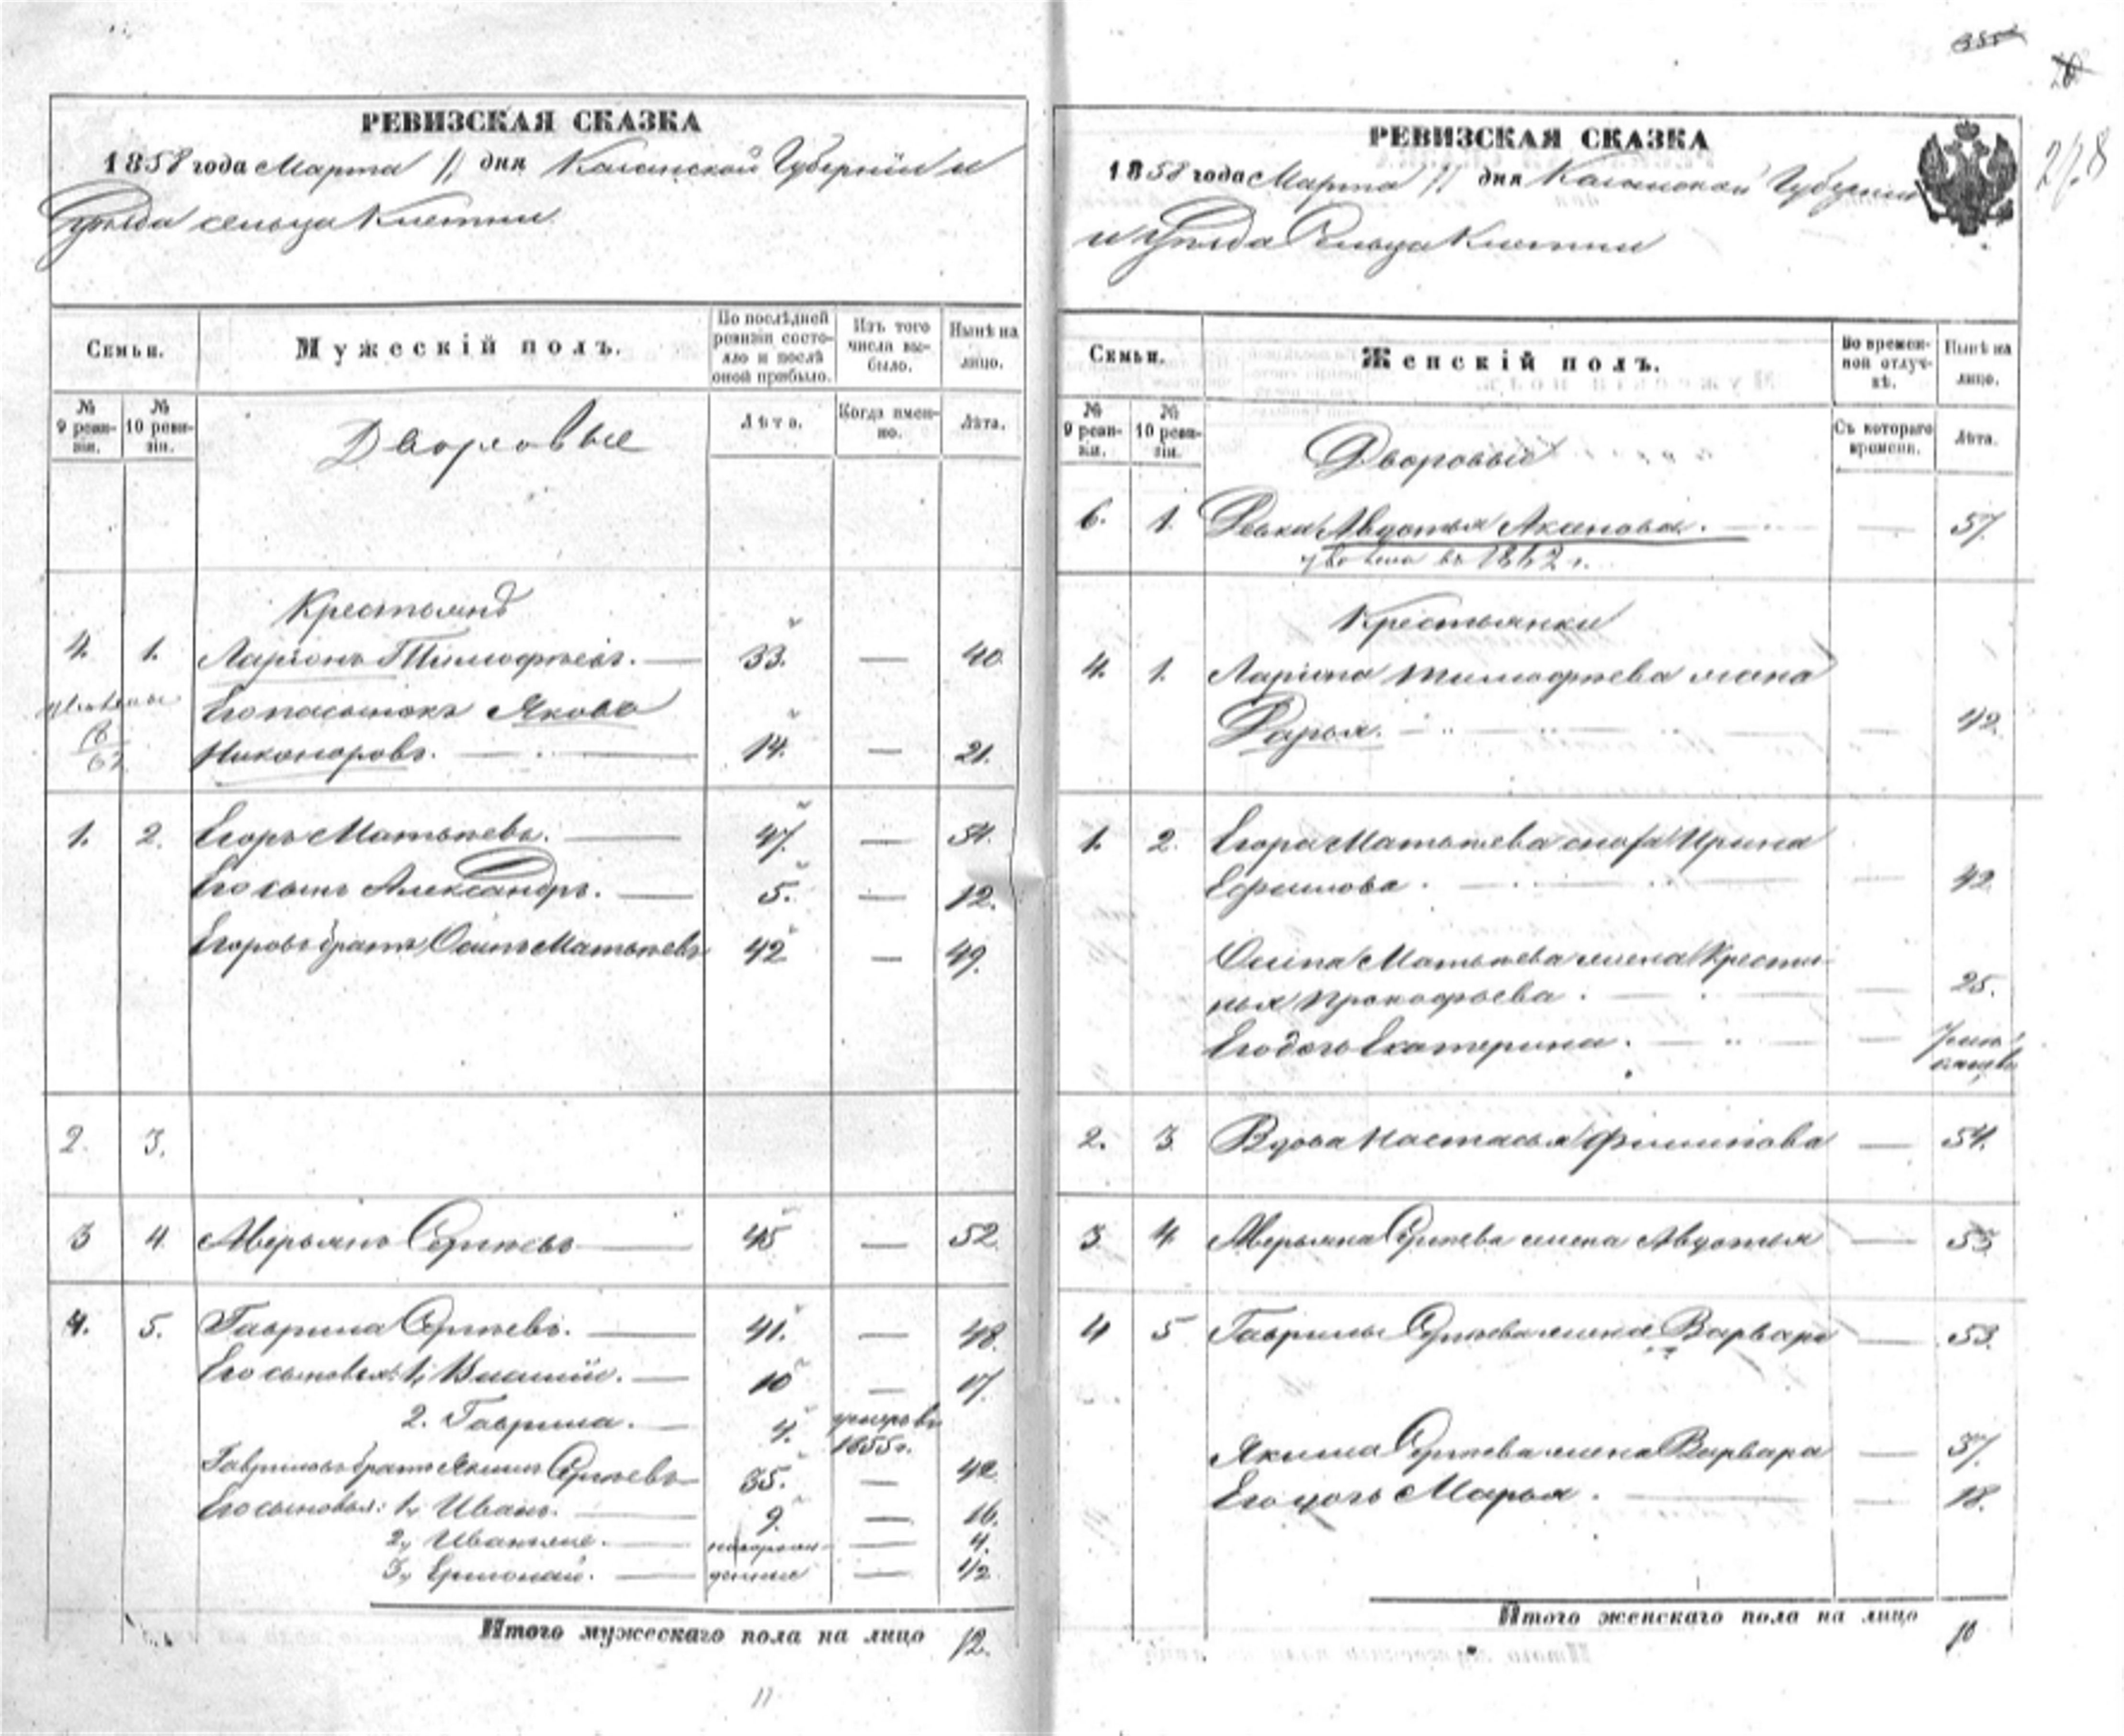 РЕВИЗСКАЯ СКАЗКА
1858 года Марта 11 дня Казанской Губерніи и
Уѣзда сельца Клетни
Семьи.
Мужескій полъ.
По послѣдней ревизіи состояло и послѣ оной прибыло.
Изъ того числа выбыло.
Нынѣ на лицо.
№ 9 ревизіи.
№ 10 ревизіи.
Дворовые
Лѣта.
Когда именно.
Лѣта.
Крестьянѣ
4. 1. Ларіонъ Тимофѣевъ. — 33. — 40
Его пасынокъ Якова
Никоноровъ. — 14. — 21.
1. 2. Егоръ Матвѣевъ. — 47. — 54.
Его сынъ Александръ. — 5. — 12.
Егоровъ братъ Осипъ Матвѣевъ 42 — 49.
2. 3.
3 4 Аверьянъ Сергѣевъ — 45 — 52
4. 5. Гаврила Сергѣевъ. — 41. — 48.
Его сыновья: 1, — 10 — 17
2. Гаврила. — 4. умеръ въ 1855 г.
Гавриловъ братъ Якимъ Сергѣевъ — 35. — 42
Его сыновья: 1, Иванъ. — 9. — 16.
2, — новорож- — 4.
3, — денные — 1/2
Итого мужескаго пола на лицо 12.
11
РЕВИЗСКАЯ СКАЗКА
1858 года Марта 11 дня Казанской Губерніи
и Уѣзда Сельца Клетни
278
Семьи.
Женскій полъ.
Во временной отлучкѣ.
Нынѣ на лицо.
№ 9 ревизіи.
№ 10 ревизіи.
Дворовые
Съ котораго времени.
Лѣта.
6. 1. Девка Авдотья — — 57
въ 1862 г.
Крестьянки
4. 1. Ларіона Тимофѣева жена
Дарья. — — 42.
1. 2. Егора Матвѣева Ирина
Ефимова. — — 42
Осипа Матвѣева жена Крести-
нья Прокофьева. — — 25.
Его дочь Екатерина. — —
2. 3. Вдова Настасья Филипова — 54.
3. 4. Аверьяна Сергѣева жена Авдотья — 53
4 5 Гаврилы Сергѣева жена Варвара — 53.
Якима Сергѣева жена Варвара — 37.
Его дочь Марья. — — 18.
Итого женскаго пола на лицо 10